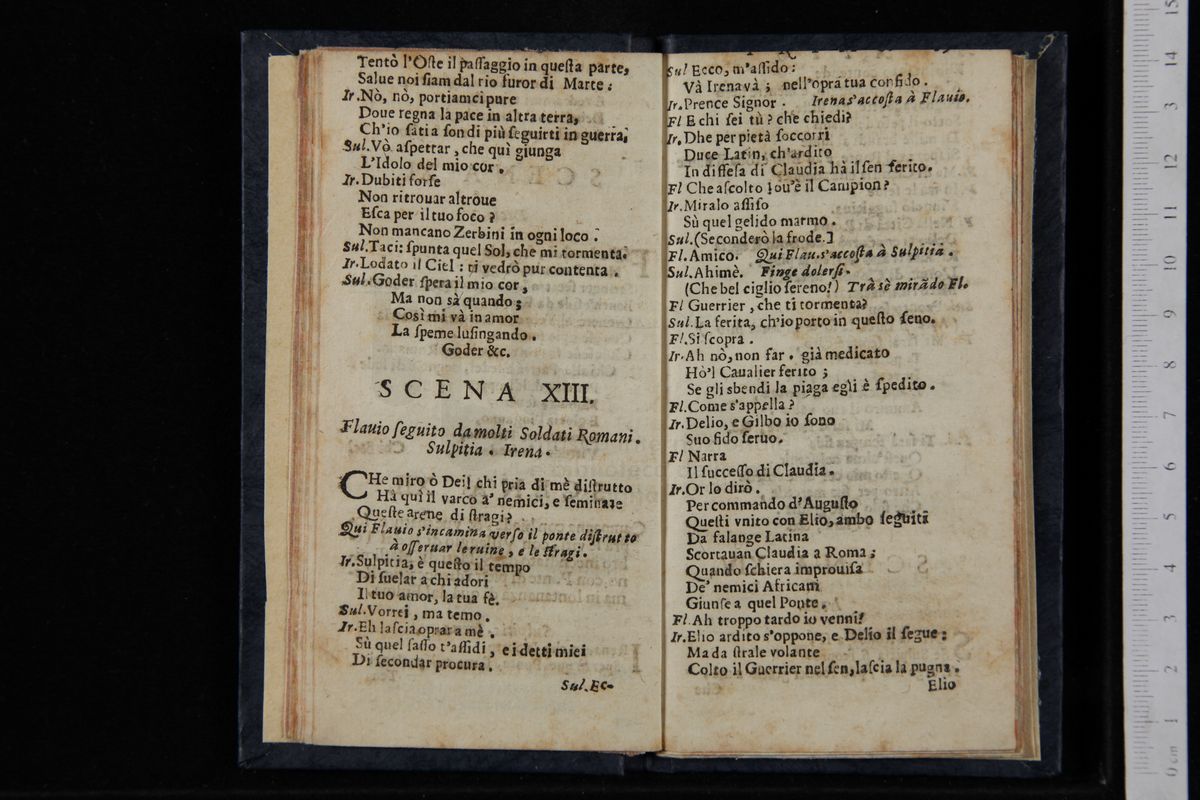 Tentò l'Oſte il paſſaggio in queſta parte,
Salue noi ſiam dal rio furor di Marte:
Ir. Nò, nò, portiamci pure
Doue regna la pace in altra terra,
Ch'io ſatia ſon di più ſeguirti in guerra;
Sul. Vò aſpettar, che quì giunga
L'Idolo del mio cor.
Ir. Dubiti forſe
Non ritrouar altroue
Eſca per il tuo foco?
Non mancano Zerbini in ogni loco.
Sul. Taci: ſpunta quel Sol, che mi tormenta.
Ir. Lodato il Ciel: ti vedrò pur contenta.
Sul. Goder ſpera il mio cor,
Ma non sà quando;
Così mi và in amor
La ſpeme luſingando.
Goder &c.
SCENA XIII.
Flauio ſeguito da molti Soldati Romani.
Sulpitia. Irena.
CHe miro ò Dei! chi pria di mè diſtrutto
Hà quì il varco a' nemici, e ſeminate
Queſte arene di ſtragi?
Qui Flauio s'incamina verſo il ponte diſtrutto
à oſſeruar le ruine, e le ſtragi.
Ir. Sulpitia, è queſto il tempo
Di ſuelar a chi adori
Il tuo amor, la tua fè.
Sul. Vorrei, ma temo.
Ir. Eh laſcia oprar a mè.
Sù quel ſaſſo t'aſſidi, e i detti miei
Di ſecondar procura.
Sul. Ec-
Sul Ecco, m'aſſido:
Và Irena và; nell'opra tua confido.
Ir. Prence Signor. Irena s'accoſta à Flauio.
Fl E chi ſei tù? che chiedi?
Ir. Dhe per pietà ſoccorri
Duce Latin, ch'ardito
In diffeſa di Claudia hà il ſen ferito.
Fl Che aſcolto! ou'è il Campion?
Ir. Miralo aſſiſo
Sù quel gelido marmo.
Sul. (Seconderò la frode.]
Fl. Amico. Qui Flau. s'accoſta à Sulpitia.
Sul. Ahimè. Finge dolerſi.
(Che bel ciglio ſereno!) Trà sè mirãdo Fl.
Fl Guerrier, che ti tormenta?
Sul. La ferita, ch'io porto in queſto ſeno.
Fl. Si ſcopra.
Ir. Ah nò, non far. già medicato
Hò'l Caualier ferito;
Se gli sbendi la piaga egli è ſpedito.
Fl. Come s'appella?
Ir. Delio, e Gilbo io ſono
Suo fido ſeruo.
Fl Narra
Il ſucceſſo di Claudia.
Ir. Or lo dirò.
Per commando d'Auguſto
Queſti vnito con Elio, ambo ſeguiti
Da falange Latina
Scortauan Claudia a Roma;
Quando ſchiera improuiſa
De' nemici Africani
Giunſe a quel Ponte.
Fl. Ah troppo tardo io venni!
Ir. Elio ardito s'oppone, e Delio il ſegue:
Ma da ſtrale volante
Colto il Guerrier nel ſen, laſcia la pugna.
Elio
0 cm 1 2 3 4 5 6 7 8 9 10 11 12 13 14 15